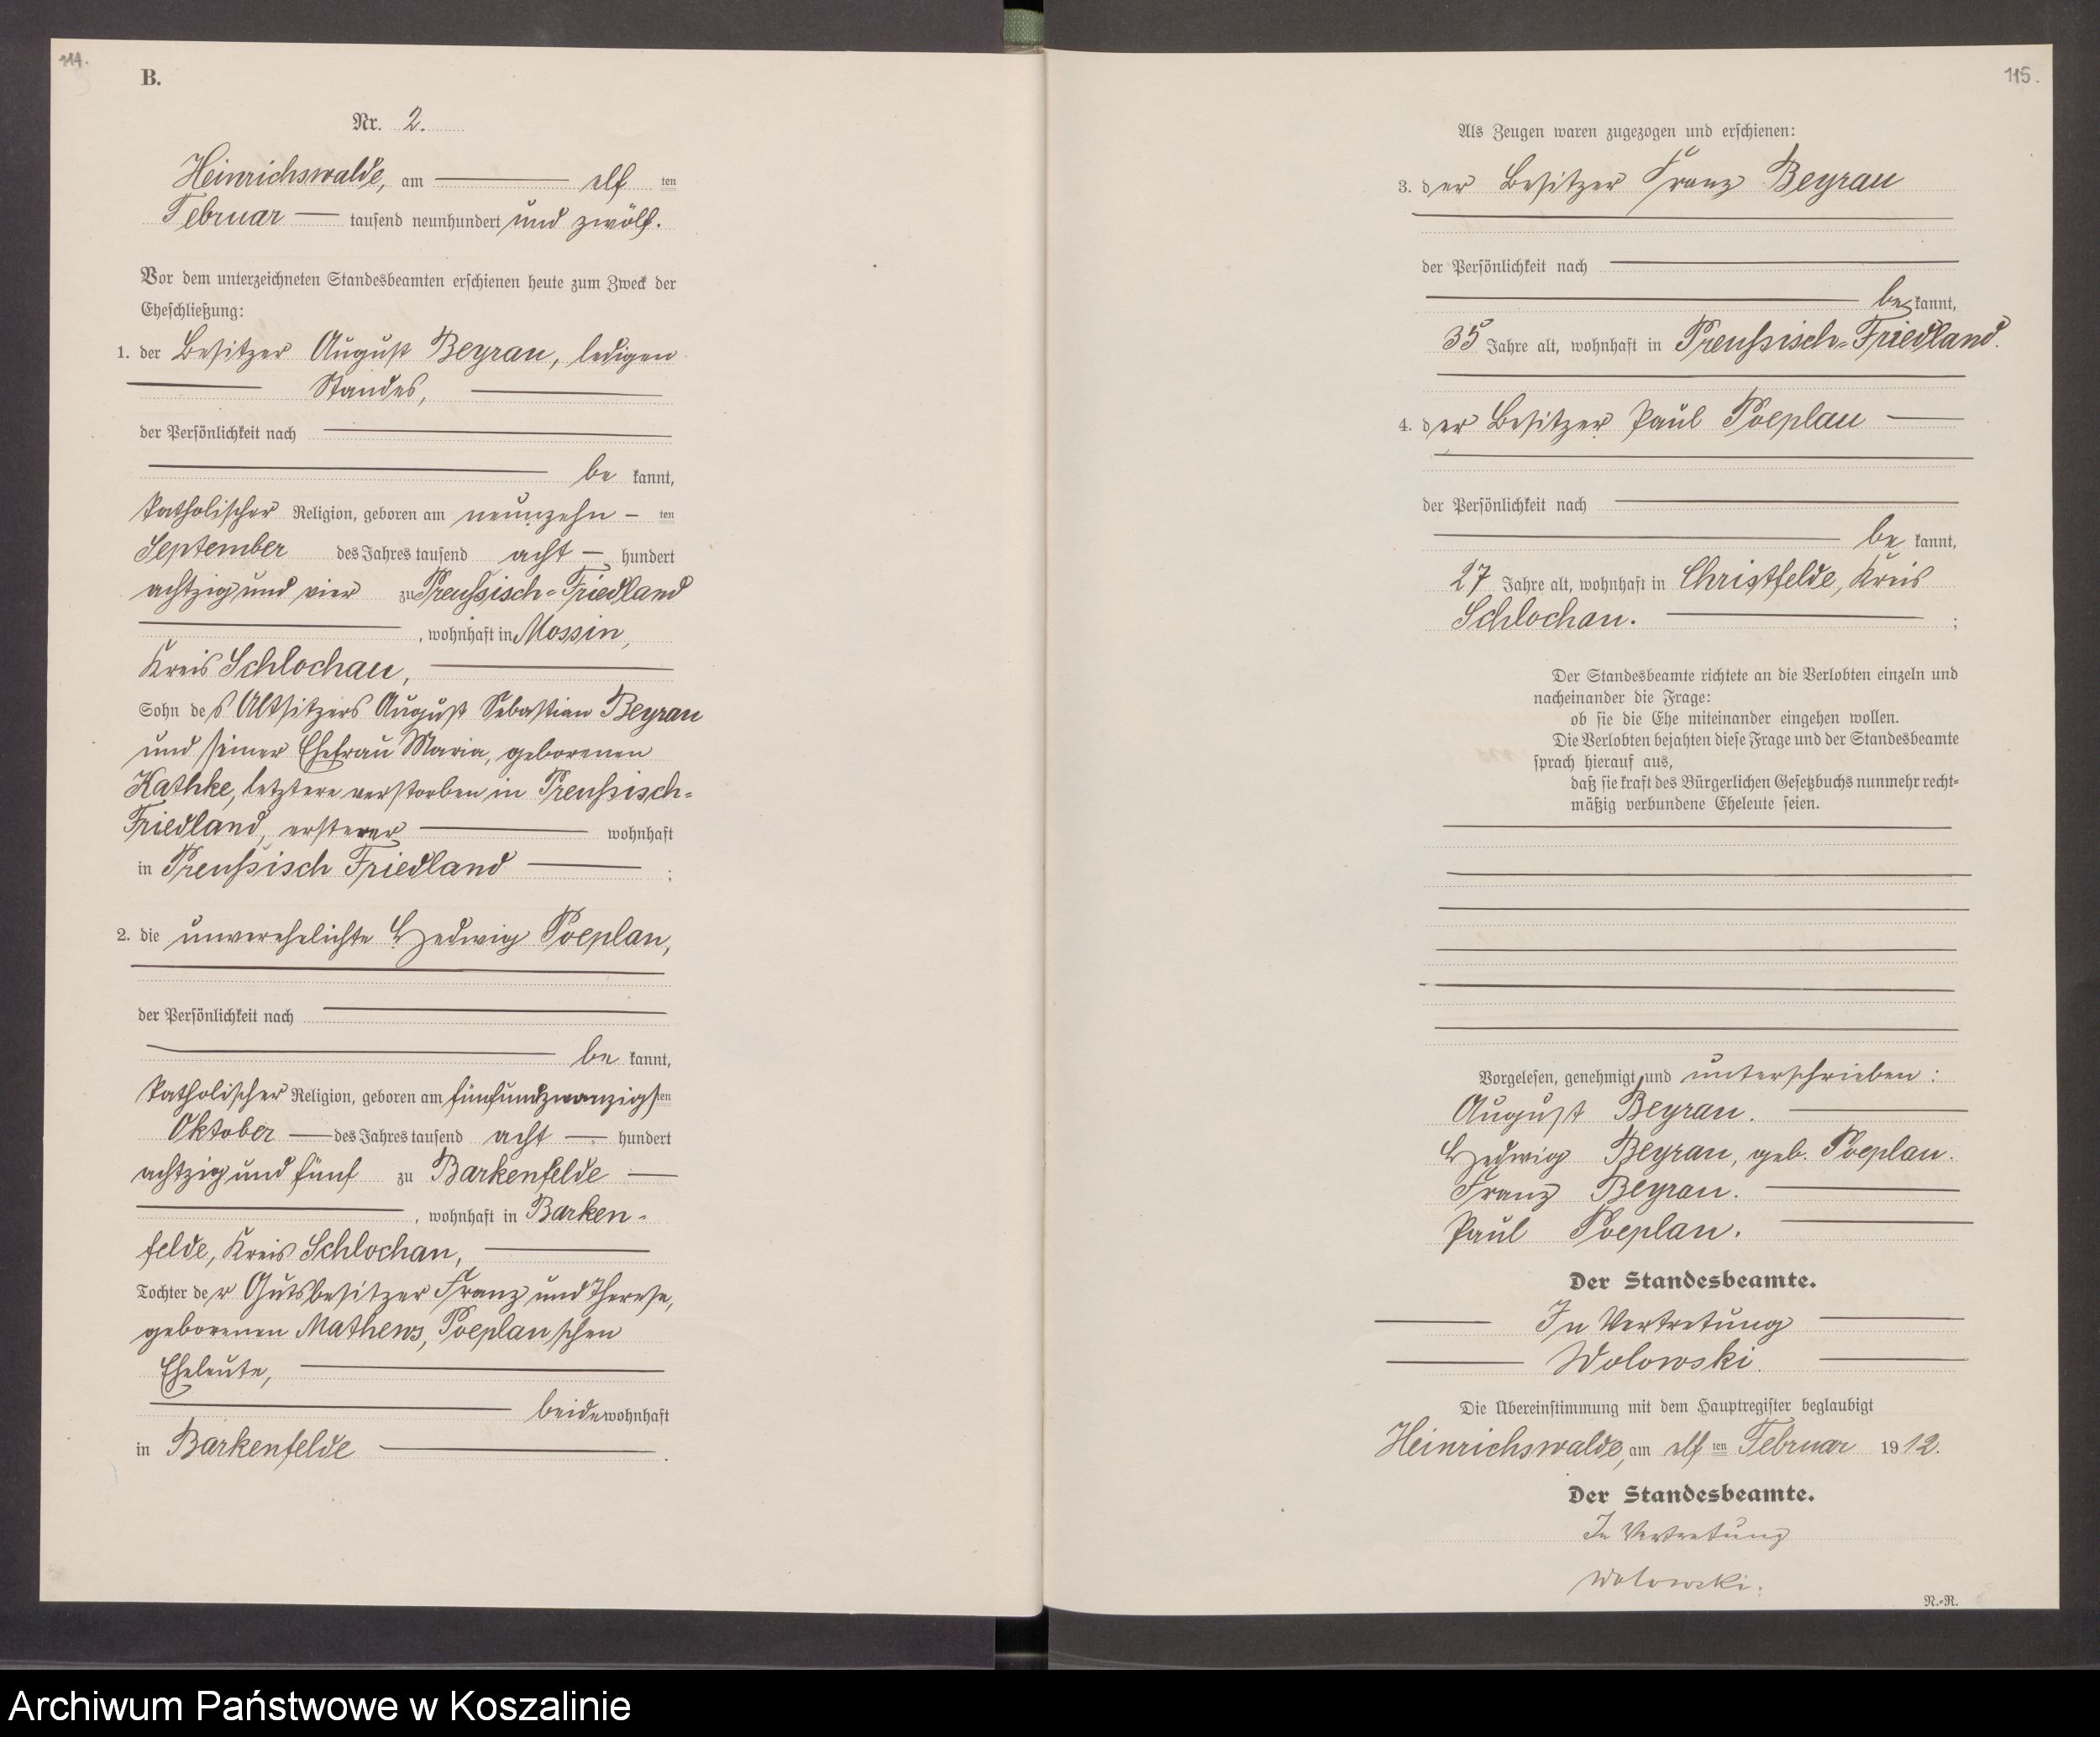 114.
B.
Nr. 2.
Heinrichswalde, am elf ten
Februar tausend neunhundert und zwölf.
Vor dem unterzeichneten Standesbeamten erschienen heute zum Zweck der
Eheschließung:
1. der Besitzer August Beyrau, ledigen
Standes,
der Persönlichkeit nach
be kannt,
katholischer Religion, geboren am neunzehn ten
September des Jahres tausend acht hundert
achtzig und vier zu Preußisch-Friedland
, wohnhaft in Mossin,
Kreis Schlochau,
Sohn des Altsitzers August Sebastian Beyrau
und seiner Ehefrau Maria, geborenen
Kathke, letztere verstorben in Preußisch-
Friedland, ersterer wohnhaft
in Preußisch Friedland ;
2. die unverehelichte Hedwig Poeplau,
der Persönlichkeit nach
be kannt,
katholischer Religion, geboren am fünfundzwanzigsten
Oktober des Jahres tausend acht hundert
achtzig und fünf zu Barkenfelde
, wohnhaft in Barken-
felde, Kreis Schlochau,
Tochter der Gutsbesitzer Franz und Therese,
geborenen Mathews, Poeplau'schen
Eheleute,
beide wohnhaft
in Barkenfelde .
115.
Als Zeugen waren zugezogen und erschienen:
3. der Besitzer Franz Beyrau
der Persönlichkeit nach
be kannt,
35 Jahre alt, wohnhaft in Preußisch-Friedland.
4. der Besitzer Paul Poeplau
der Persönlichkeit nach
be kannt,
27 Jahre alt, wohnhaft in Christfelde, Kreis
Schlochau. ;
Der Standesbeamte richtete an die Verlobten einzeln und
nacheinander die Frage:
ob sie die Ehe miteinander eingehen wollen.
Die Verlobten bejahten diese Frage und der Standesbeamte
sprach hierauf aus,
daß sie kraft des Bürgerlichen Gesetzbuchs nunmehr recht-
mäßig verbundene Eheleute seien.
Vorgelesen, genehmigt und unterschrieben:
August Beyrau.
Hedwig Beyrau, geb. Poeplau.
Franz Beyrau.
Paul Poeplau.
Der Standesbeamte.
In Vertretung
Wolowski.
Die Übereinstimmung mit dem Hauptregister beglaubigt
Heinrichswalde, am elf ten Februar 1912.
Der Standesbeamte.
In Vertretung
Wolowski.
N.-R.
Archiwum Państwowe w Koszalinie